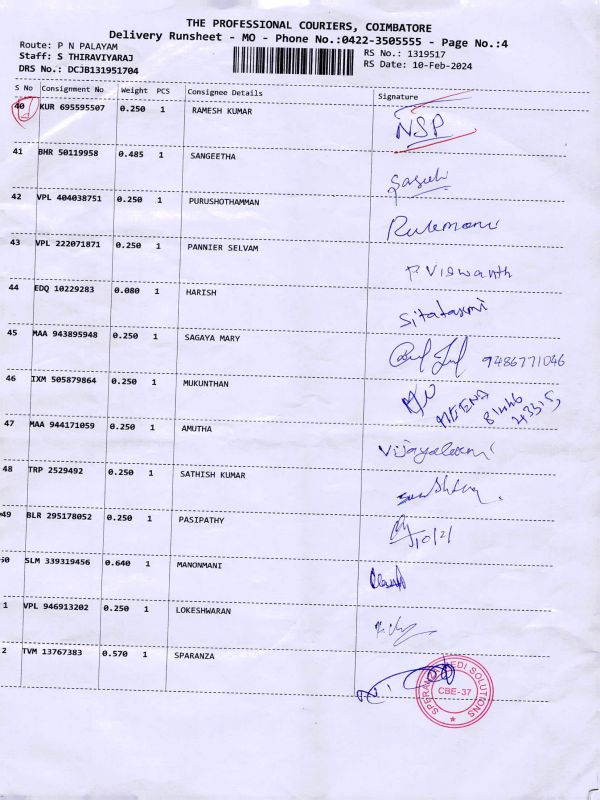 THE PROFESSIONAL COURIERS, COIMBATORE
Delivery Runsheet - MO - Phone No.:0422-3505555 - Page No.:4
Route: P N PALAYAM
Staff: S THIRAVIYARAJ
DRS No.: DCJB131951704
RS No.: 1319517
RS Date: 10-Feb-2024
S No Consignment No Weight PCS Consignee Details Signature
40 KUR 695595507 0.250 1 RAMESH KUMAR NSP
41 BHR 50119958 0.485 1 SANGEETHA
42 VPL 404038751 0.250 1 PURUSHOTHAMMAN Rukmani
43 VPL 222071871 0.250 1 PANNIER SELVAM P Viswanth
44 EDQ 10229283 0.080 1 HARISH Sitalaxmi
45 MAA 943895948 0.250 1 SAGAYA MARY 9486771046
46 IXM 505879864 0.250 1 MUKUNTHAN
47 MAA 944171059 0.250 1 AMUTHA Vijayalaxmi
48 TRP 2529492 0.250 1 SATHISH KUMAR
49 BLR 295178052 0.250 1 PASIPATHY 10/2/
50 SLM 339319456 0.640 1 MANONMANI
1 VPL 946913202 0.250 1 LOKESHWARAN
2 TVM 13767383 0.570 1 SPARANZA
CBE-37
SOLUTIONS